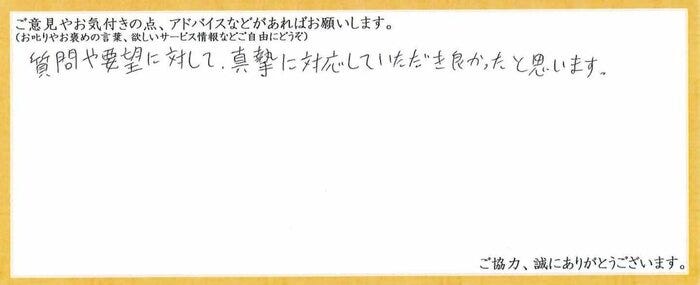 ご意見やお気付きの点、アドバイスなどがあればお願いします。
(お叱りやお褒めの言葉、欲しいサービス情報などご自由にどうぞ)
質問や要望に対して、真摯に対応していただき良かったと思います。
ご協力、誠にありがとうございます。